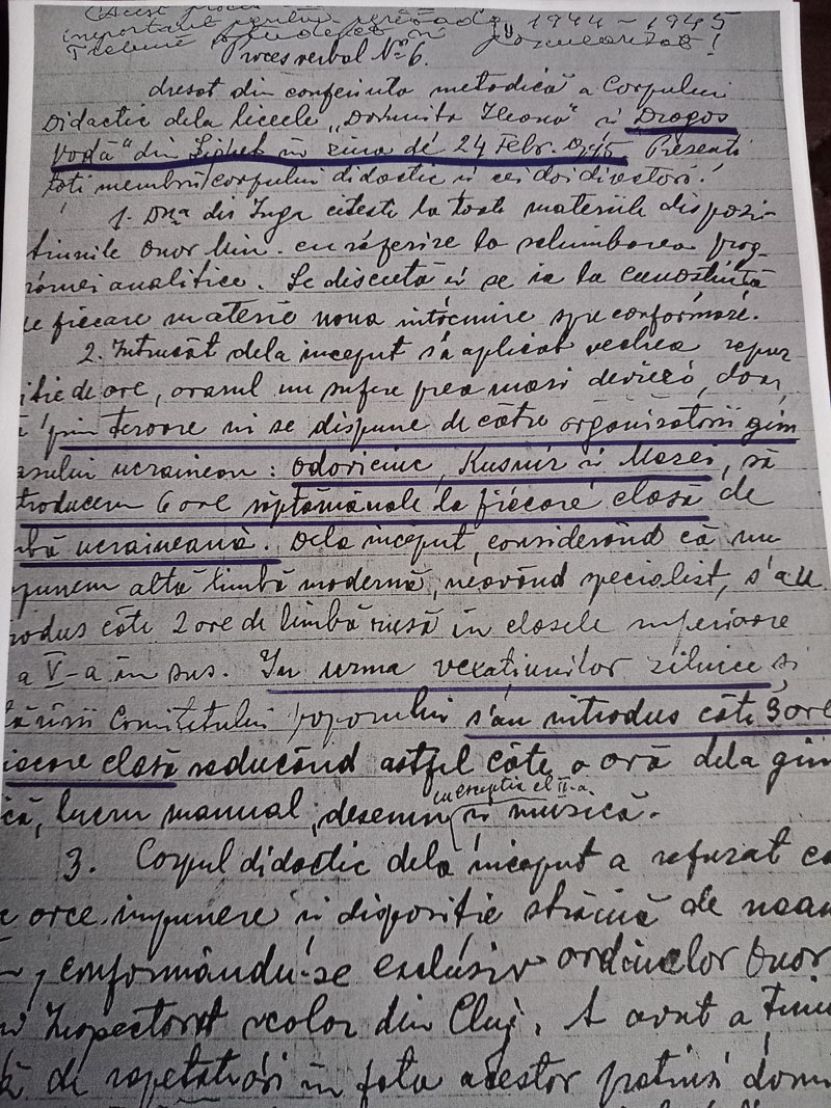 (Acest proces
important pentru perioada 1944-1945
Trebuie și popularizat!
Proces verbal Nº 6.
dresat din conferința metodică a Corpului
Didactic dela liceele „Domnița Ileana" și „Dragoș
Vodă" din Sighet în ziua de 24 Febr. 1945 Prezenți
toți membrii corpului didactic și cei doi directori.
1. Dna dir citește la toate materiile dispozi-
țiunile Onor Min. cu referire la schimbarea prog-
ramei analitice. Se discută și se ia la cunoștință
de fiecare materie noua întocmire spre conformare.
2. Întrucât dela început s'a aplicat vechea repar-
tiție de ore, orașul nu sufere prea mari devieri, doar,
că prin teroare ni se dispune de către organizatorii gim
nasului ucrainean: Odoviciuc, Kusnir și Mozei, să
troducem 6 ore săptămânale la fiecare clasă de
mbă ucraineană. Dela început, considerând că nu
punem altă limbă modernă, neavând specialist, s'au
rodus câte 2 ore de limbă rusă în clasele superioare
a V-a în sus. În urma vexațiunilor zilnice și
Comitetului poporului s'au introdus câte 3 ore
iecare clasă reducând astfel câte o oră dela gim
că, lucru manual, desemn cu excepția cl II-a. și muzică.
3. Corpul didactic dela început a refuzat ca
e orce impunere și dispoziție străină de neam
, conformându-se exclusiv ordinelor Onor
Inspectorat școlar din Cluj. A avut a
ă de repetatori în fața acestor pretinși domn